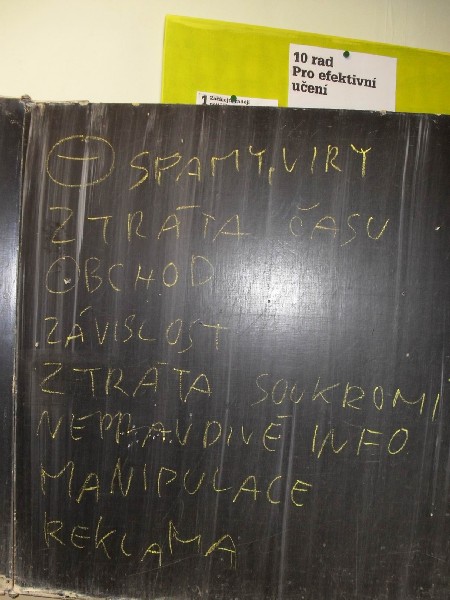 10 rad
Pro efektivní
učení
1
⊖ SPAMY, VIRY
ZTRÁTA ČASU
OBCHOD
ZÁVISLOST
ZTRÁTA SOUKROMI
NEPRAVDIVÉ INFO
MANIPULACE
REKLAMA